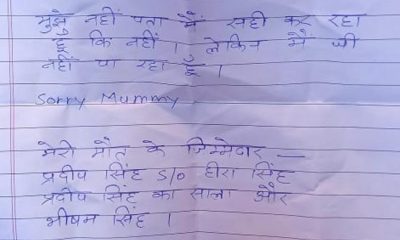 मुझे नहीं पता मैं सही कर रहा
हूँ कि नहीं । लेकिन मैं जी
नहीं पा रहा हूँ ।
Sorry Mummy
मेरी मौत के जिम्मेदार —
प्रदीप सिंह S/o हीरा सिंह
प्रदीप सिंह का साला और
भीषम सिंह ।